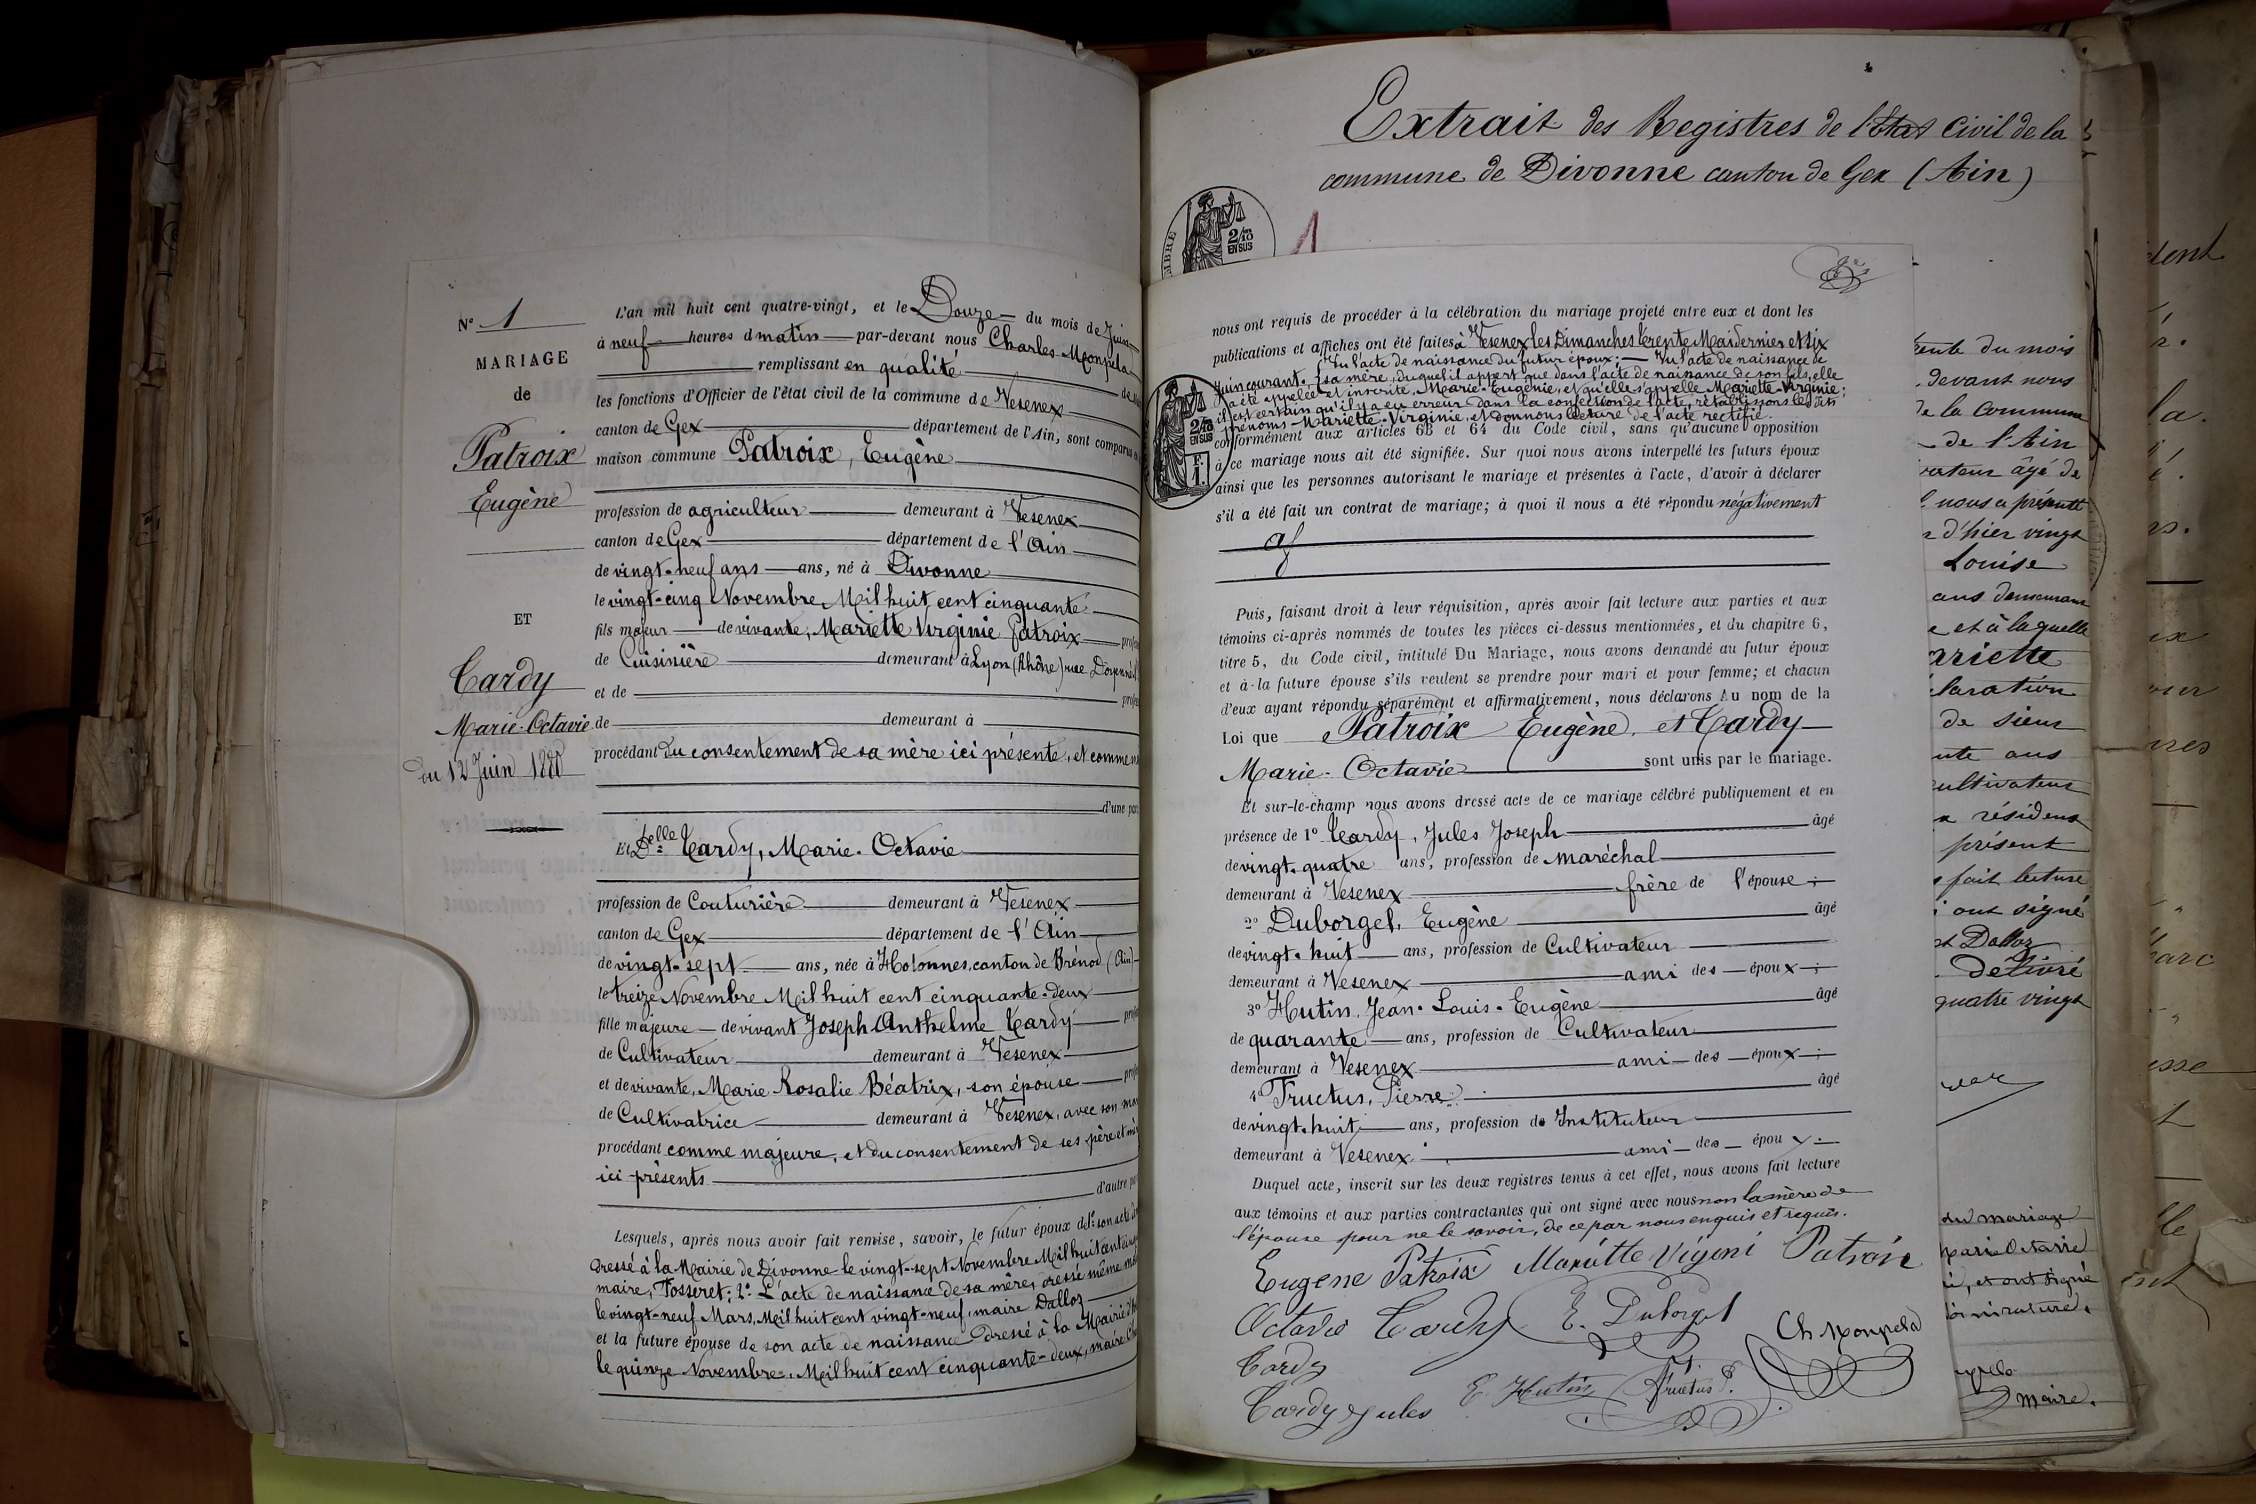 N° 1
MARIAGE
de
Patroix
Eugène
ET
Tardy
Marie-Octavie
du 12 Juin 1880
L'an mil huit cent quatre-vingt, et le Douze du mois de Juin
à neuf heures d matin par-devant nous Charles Monpela
remplissant en qualité de
les fonctions d'Officier de l'état civil de la commune de Vesenex
canton de Gex département de l'Ain, sont comparus
maison commune Patroix, Eugène
profession de agriculteur demeurant à Vesenex
canton de Gex département de l'Ain
de vingt-neuf ans ans, né à Divonne
le vingt-cinq Novembre Mil huit cent cinquante
fils majeur de vivante, Mariette Virginie Patroix
de Cuisinière demeurant à Lyon (Rhône) rue
et de
de demeurant à
procédant du consentement de sa mère ici présente, et comme
d'une par
Et Delle Tardy, Marie-Octavie
profession de Couturière demeurant à Vesenex
canton de Gex département de l'Ain
de vingt-sept ans, née à Hotonnes, canton de Brénod (Ain)
le treize Novembre Mil huit cent cinquante-deux
fille majeure de vivant Joseph Anthelme Tardy
de Cultivateur demeurant à Vesenex
et de vivante, Marie Rosalie Béatrix, son épouse
de Cultivatrice demeurant à Vesenex, avec son
procédant comme majeure, et du consentement de ses père et
ici présents
d'autre
Lesquels, après nous avoir fait remise, savoir, le futur époux de 1° son acte de
dressé à la Mairie de Divonne le vingt-sept Novembre Mil huit cent
maire, Fosseret; 2° L'acte de naissance de sa mère, dressé même
le vingt-neuf Mars, Mil huit cent vingt-neuf, maire Dalloz
et la future épouse de son acte de naissance dressé à la Mairie
le quinze Novembre, Mil huit cent cinquante-deux, maire
Extrait des Registres de l'état Civil de la
commune de Divonne canton de Gex (Ain)
2/10
EN SUS
nous ont requis de procéder à la célébration du mariage projeté entre eux et dont les
publications et affiches ont été faites à Vesenex les Dimanches trente Mai dernier et Six
Juin courant. Vu l'acte de naissance du futur époux; Vu l'acte de naissance de
sa mère, duquel il appert que dans l'acte de naissance de son fils, elle
a été appelée et inscrite, Marie-Eugénie, et qu'elle s'appelle Mariette-Virginie;
il est certain qu'il y a eu erreur dans la confection de l'acte, rétablissons les dits
prénoms Mariette-Virginie, et donnons lecture de l'acte rectifié.
2/10
EN SUS
F.
1.
conformément aux articles 63 et 64 du Code civil, sans qu'aucune opposition
à ce mariage nous ait été signifiée. Sur quoi nous avons interpellé les futurs époux
ainsi que les personnes autorisant le mariage et présentes à l'acte, d'avoir à déclarer
s'il a été fait un contrat de mariage; à quoi il nous a été répondu négativement
Puis, faisant droit à leur réquisition, après avoir fait lecture aux parties et aux
témoins ci-après nommés de toutes les pièces ci-dessus mentionnées, et du chapitre 6,
titre 5, du Code civil, intitulé Du Mariage, nous avons demandé au futur époux
et à la future épouse s'ils veulent se prendre pour mari et pour femme; et chacun
d'eux ayant répondu séparément et affirmativement, nous déclarons Au nom de la
Loi que Patroix Eugène et Tardy
Marie-Octavie sont unis par le mariage.
Et sur-le-champ nous avons dressé acte de ce mariage célébré publiquement et en
présence de 1° Tardy, Jules Joseph âgé
de vingt-quatre ans, profession de maréchal
demeurant à Vesenex frère de l'épouse;
2° Duborgel, Eugène âgé
de vingt-huit ans, profession de Cultivateur
demeurant à Vesenex ami des époux;
3° Hutin, Jean-Louis-Eugène âgé
de quarante ans, profession de Cultivateur
demeurant à Vesenex ami des époux;
4° Fructus, Pierre âgé
de vingt-huit ans, profession de Instituteur
demeurant à Vesenex ami des époux.
Duquel acte, inscrit sur les deux registres tenus à cet effet, nous avons fait lecture
aux témoins et aux parties contractantes qui ont signé avec nous non la mère de
l'épouse pour ne le savoir, de ce par nous enquis et requis.
Eugene Patroix Mariette Vigeni Patroix
Octavie Tardy E. Duborgel
Ch Monpela
Tardy
Tardy Jules E. Hutin Fructus P.
du mois
devant nous
de la Commune
de l'Ain
âgé de
nous a présenté
d'hier vingt
Louise
ans demeurant
et à laquelle
ariette
de sieur
ans
présent
fait lecture
ont signé
et Dalloz
Délivré
quatre vingt
du mariage
Marie Octavie
et ont signé
maire.